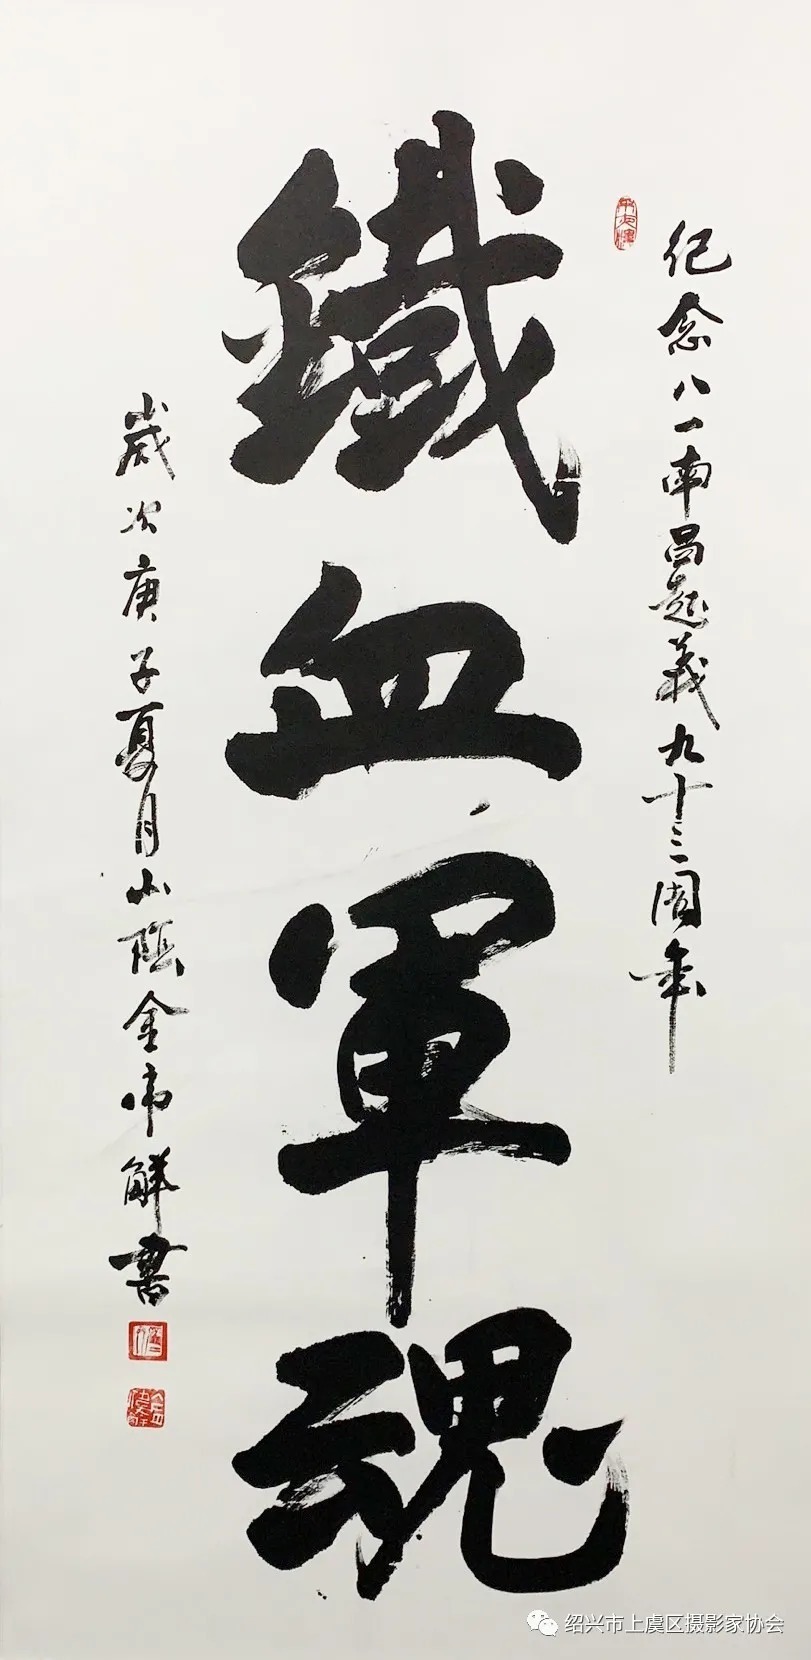 纪念八一南昌起義九十三周年
鐵血軍魂
歲次庚子夏月山陰金帝解書
绍兴市上虞区摄影家协会